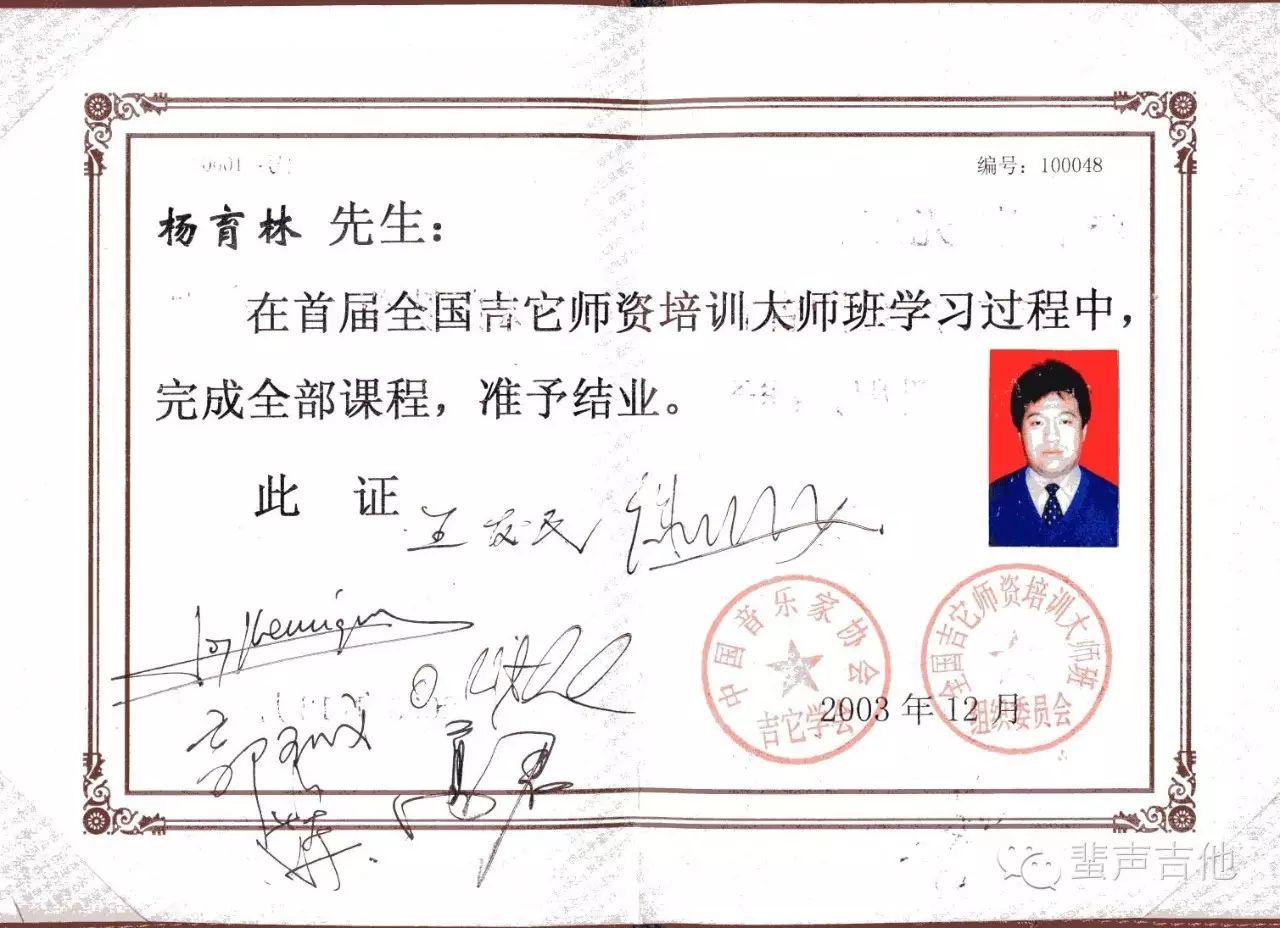 编号：100048
杨育林 先生：
在首届全国吉它师资培训大师班学习过程中，
完成全部课程，准予结业。
此 证
王友民
中国音乐家协会
吉它学会
全国吉它师资培训大师班
组织委员会
2003 年 12 月
蜚声吉他